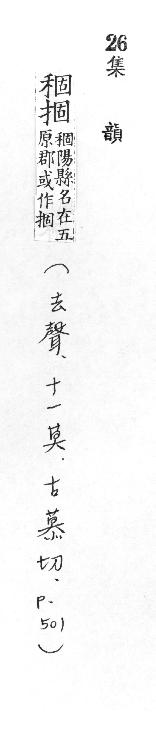 26
集韻
稒𢫦稒陽縣名在五
原郡或作𢫦
（去聲、十一莫．古慕切、P.501）